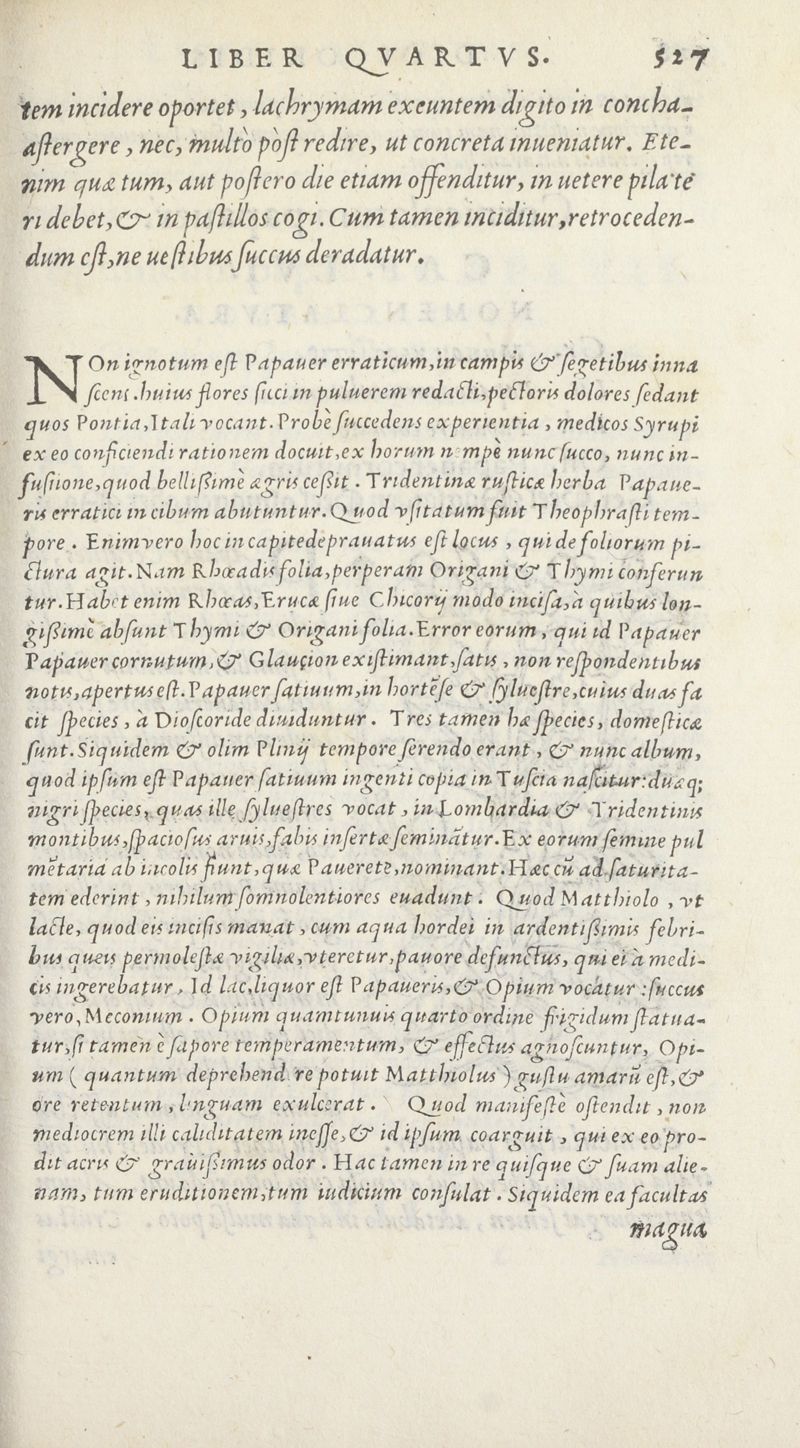 LIBER QVARTVS. 527
tem incidere oportet, lachrymam exeuntem digito in concha-
aſtergere, nec, multò pòſt redire, ut concreta inueniatur. Ete-
nim quæ tum, aut poſtero die etiam offenditur, in uetere pila te
ri debet, & in paſtillos cogi. Cum tamen inciditur, retroceden-
dum eſt, ne ueſtibus ſuccus deradatur.
NOn ignotum eſt Papauer erraticum, in campis & ſegetibus inna
ſcens .huius flores ſicci in puluerem redacti, pectoris dolores ſedant
quos Pontia, Itali vocant. Probè ſuccedens experientia, medicos Syrupi
ex eo conficiendi rationem docuit, ex horum nempè nunc ſucco, nunc in-
fuſione, quod belliſſimè ægris ceſſit. Tridentinæ ruſticæ herba Papaue-
ris erratici in cibum abutuntur. Quod vſitatum fuit Theophraſti tem-
pore. Enimvero hoc in capite deprauatus eſt locus, qui de foliorum pi-
ctura agit. Nam Rhœadis folia, perperam Origani & Thymi conferun
tur. Habet enim Rhœas, Erucæ ſiue Chicorij modo inciſa, à quibus lon-
giſſimè abſunt Thymi & Origani folia. Error eorum, qui id Papauer
Papauer cornutum, & Glaucion exiſtimant, ſatis, non reſpondentibus
notis, apertus eſt. Papauer ſatiuum, in hortēſe & ſylueſtre, cuius duas fa
cit ſpecies, à Dioſcoride diuiduntur. Tres tamen hæ ſpecies, domeſticæ
ſunt. Siquidem & olim Plinij tempore ſerendo erant, & nunc album,
quod ipſum eſt Papauer ſatiuum ingenti copia in Tuſcia naſcitur: duæq;
nigri ſpecies, quas ille ſylueſtres vocat, in Lombardia & Tridentinis
montibus, ſpacioſus aruis, fabis inſertæ ſeminātur. Ex eorum ſemine pul
mētaria ab incolis fiunt, quæ Pauerete, nominant. Hæc cū ad ſaturita-
tem ederint, nihilum ſomnolentiores euadunt. Quod Matthiolo, vt
lacte, quod eis inciſis manat, cum aqua hordei in ardentiſſimis febri-
bus queis permoleſtæ vigiliæ, vteretur, pauore defunctus, qui ei à medi-
cis ingerebatur. Id lac, liquor eſt Papaueris, & Opium vocātur: ſuccus
vero, Meconium. Opium quamtunuis quarto ordine frigidum ſtatua-
tur, ſi tamen è ſapore temperamentum, & effectus agnoſcuntur, Opi-
um ( quantum deprehendere potuit Matthiolus ) guſtu amarū eſt, &
ore retentum, linguam exulcerat. Quod manifeſtè oſtendit, non
mediocrem illi caliditatem ineſſe, & id ipſum coarguit, qui ex eo pro-
dit acris & grauiſſimus odor. Hac tamen in re quiſque & ſuam alie-
nam, tum eruditionem, tum iudicium conſulat. Siquidem ea facultas
magna